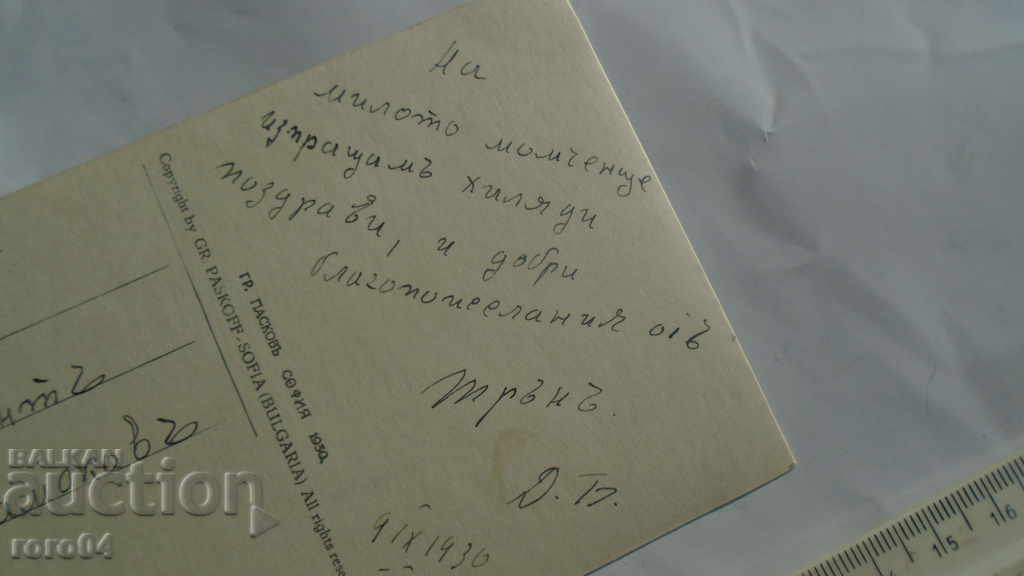 На
милото момченце
изпращамъ хиляди
поздрави, и добри
благопожелания отъ
Трънъ.
Д. П.
9 IX 1930
Copyright by GR. PASKOFF-SOFIA (BULGARIA) All rights rese
ГР. ПАСКОВЪ СОФИЯ 1930
БАЛКАН
auction
roro04
15
16